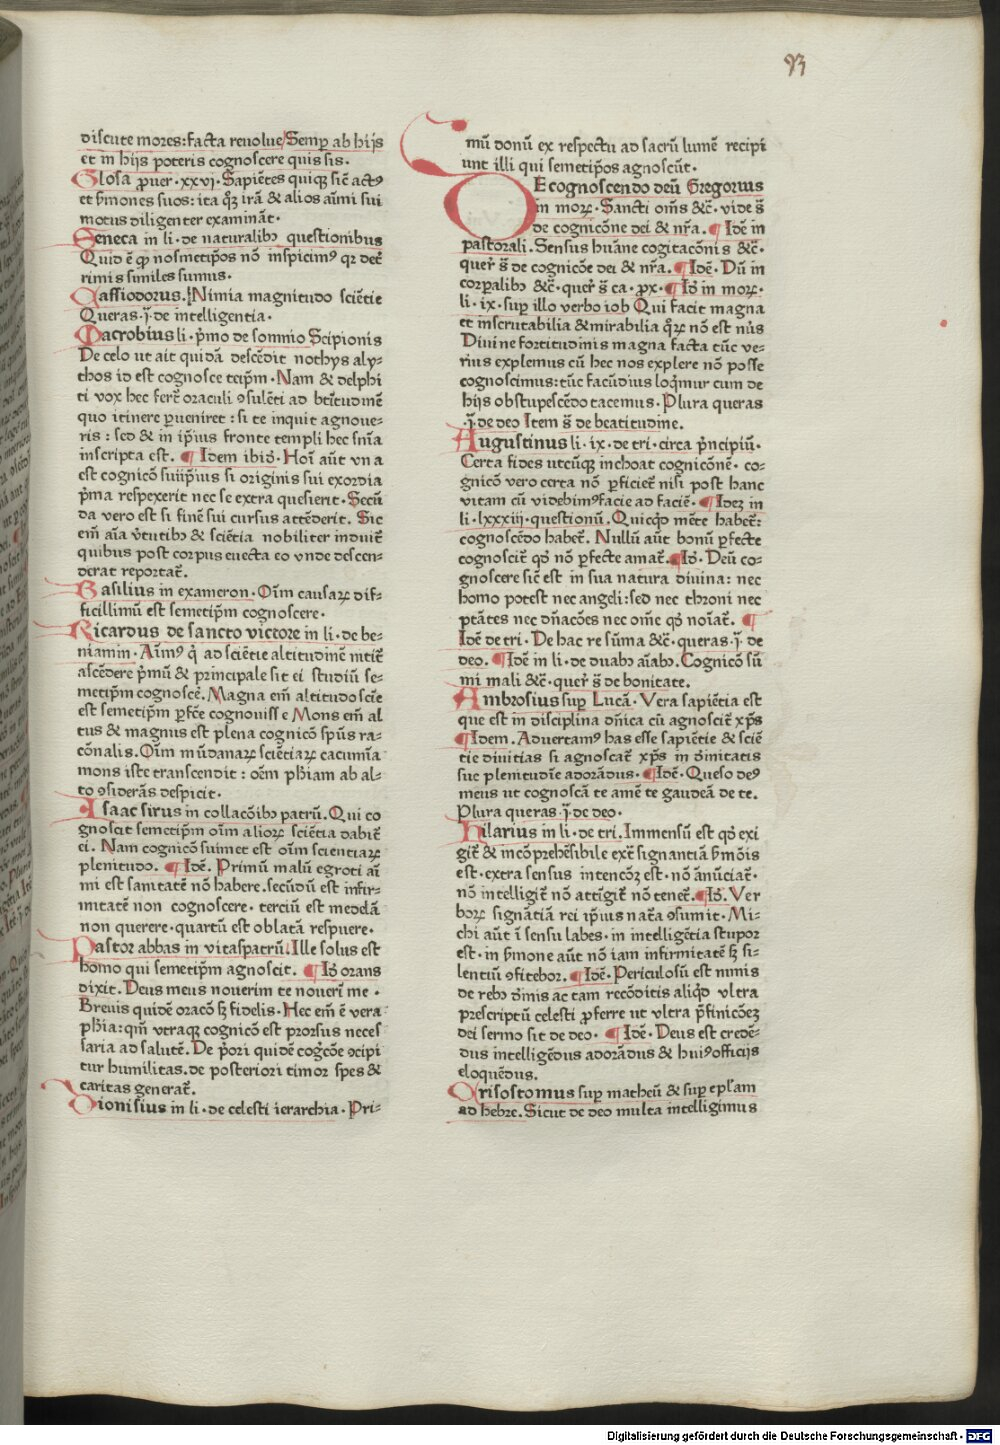 93
discute mores:facta reuolue/Semꝑ ab hijs
et in hijs poteris cognoscere quis sis.
Glosa ꝓuer.xxvi.Sapiētes quiqꝫ sic̄ actꝰ
et ẜmones suos:ita qꝫ irā & alios aīmi sui
motus diligenter examināt.
Seneca in li.de naturalibꝫ questionibus
Quid ē ꝙ nosmetipōs nō inspicimꝰ qr det̄
rimis similes sumus.
Cassiodorus. Nimia magnitudo sciētie
Queras.j̄.de intelligentia.
Macrobius li.pͥmo de somnio Scipionis
De celo ut ait quidā descēdit nothys aly-
thos id est cognosce teipm̄.Nam & delphi
ti vox hec fert̄ oraculi ꝯsulēti ad bt̄itudinē
quo itinere ꝑueniret:si te inquit agnoue-
ris:sed & in ip̄ius fronte templi hec sn̄ia
inscripta est. ¶Idem ibid̄.Hoī aūt vna
est cognicō suiip̄ius si originis sui exordia
pͥma respexerit nec se extra quesierit.Secū
da vero est si finē sui cursus attēderit. Sic
em̄ aīa v̄tutibꝫ & sciētia nobiliter induit̄
quibus post corpus euecta eo vnde descen-
derat reportat̄.
Basilius in exameron.Oīm causaꝝ dif-
ficillimū est semetipm̄ cognoscere.
Ricardus de sancto victore in li.de be-
niamin.Aīmꝰ q̇ ad sciētie altitudinē nitit̄
ascēdere pͥmū & principale sit ei studiū se-
metipm̄ cognoscē.Magna em̄ altitudo scīe
est semetipm̄ ꝑfc̄e cognouisse Mons em̄ al
tus & magnus est plena cognicō spūs ra-
cōnalis.Oīm mūdanaꝝ sciētiaꝝ cacumīa
mons iste transcendit:oēm phīam ab al-
to ꝯsiderās despicit.
Isaac sirus in collacōibꝫ patrū.Qui co
gnoscit semetipm̄ oīm alioꝝ sciētia dabit̄
ei. Nam cognicō suimet est oīm scientiaꝝ
plenitudo. ¶Idē. Primū malū egroti aī
mi est sanitatē nō habere.secūdū est infir-
mitatē non cognoscere.terciū est medelā
non querere.quartū est oblatā respuere.
Pastor abbas in vitaspatrū.Ille solus est
homo qui semetipm̄ agnoscit. ¶Id̄ orans
dixit.Deus meus nouerim te nouerī me.
Breuis quidē oracō sꝫ fidelis.Hec em̄ ē vera
phīa:qm̄ vtraqꝫ cognicō est prorsus neces
saria ad salutē.De pͥori quidē cogc̄ōe ꝯcipi
tur humilitas.de posteriori timor spes &
caritas generat̄.
Dionisius in li.de celesti ierarchia.Pri-
mū donū ex respectu ad sacrū lumē recipi
unt illi qui semetipōs agnoscūt.
DE cognoscendo deū Gregorius
in morꝝ.Sancti oīns &c̄.vide s̄
de cognicōne dei & nr̄a.¶Idē in
pastorali.Sensus huāne cogitacōnis &c̄.
quer̄ s̄ de cognicōe dei & nr̄a.¶Idē.Dū in
corꝑalibꝫ &c̄.quer̄ s̄ ca.ꝓx.¶Id̄ in morꝝ.
li.ix.suꝑ illo verbo iob Qui facit magna
et inscrutabilia & mirabilia qͦꝝ nō est nūs
Diuine fortitudinis magna facta tūc ve-
rius explemus cū hec nos explere nō posse
cognoscimus:tūc facūdius loqͥmur cum de
hijs obstupescēdo tacemus.Plura queras
.j̄.de deo Item s̄ de beatitudine.
Augustinus li.ix.de tri.circa pͥncipiū.
Certa fides utcūqꝫ inchoat cognicōnē.co-
gnicō vero certa nō ꝑficiet̄ nisi post hanc
vitam cū videbimꝰ facie ad faciē.¶Ideꝫ in
li.lxxxiij.questionū.Quicqͥd mēte habet̄:
cognoscēdo habet̄. Nullū aūt bonū ꝑfecte
cognoscit̄ qd̄ nō ꝑfecte amat̄.¶Id̄. Deū co-
gnoscere sic̄ est in sua natura diuina: nec
homo potest nec angeli:sed nec throni nec
ptātes nec dn̄acōes nec om̄e qd̄ noīat̄. ¶
Idē de tri.De hac re sūma &c̄.queras.j̄.de
deo.¶Idē in li.de duabꝫ aīabꝫ.Cognicō sū
mi mali &c̄.quer̄ s̄ de bonitate.
Ambrosius suꝑ Lucā.Vera sapiētia est
que est in disciplina dn̄ica cū agnoscit̄ xp̄s
¶Idem.Aduertamꝰ has esse sapiētie & sciē
tie diuitias si agnoscat̄ xp̄s in diuinitatis
sue plenitudīe adorādus.¶Idē.Queso deꝰ
meus ut cognoscā te amē te gaudeā de te.
Plura queras.j̄.de deo.
Hilarius in li.de tri.Immensū est qd̄ exi
git̄ & incōprehēsibile ext̄ signantiā ẜmōis
est.extra sensus intencōꝫ est.nō ānūciat̄.
nō intelligit̄ nō attīgit̄ nō tenet̄.¶Id̄.Ver
borꝝ signātiā rei ip̄ius nat̄a ꝯsumit.Mi-
chi aūt ī sensu labes.in intelligētia stupor
est.in ẜmone aūt nō iam infirmitatē sꝫ si-
lentiū ꝯfitebor.¶Idē.Periculosū est nimis
de rebꝫ diuinis ac tam recōditis aliqͥd vltra
prescriptū celesti ꝓferre ut vltra p̄finicōeꝫ
dei sermo sit de deo. ¶Idē.Deus est credē-
dus intelligēdus adorādus & huiꝰ officijs
eloquēdus.
Crisostomus suꝑ matheū & suꝑ epl̄am
ad hebre.Sicut de deo multa intelligimus
Digitalisierung gefördert durch die Deutsche Forschungsgemeinschaft - DFG